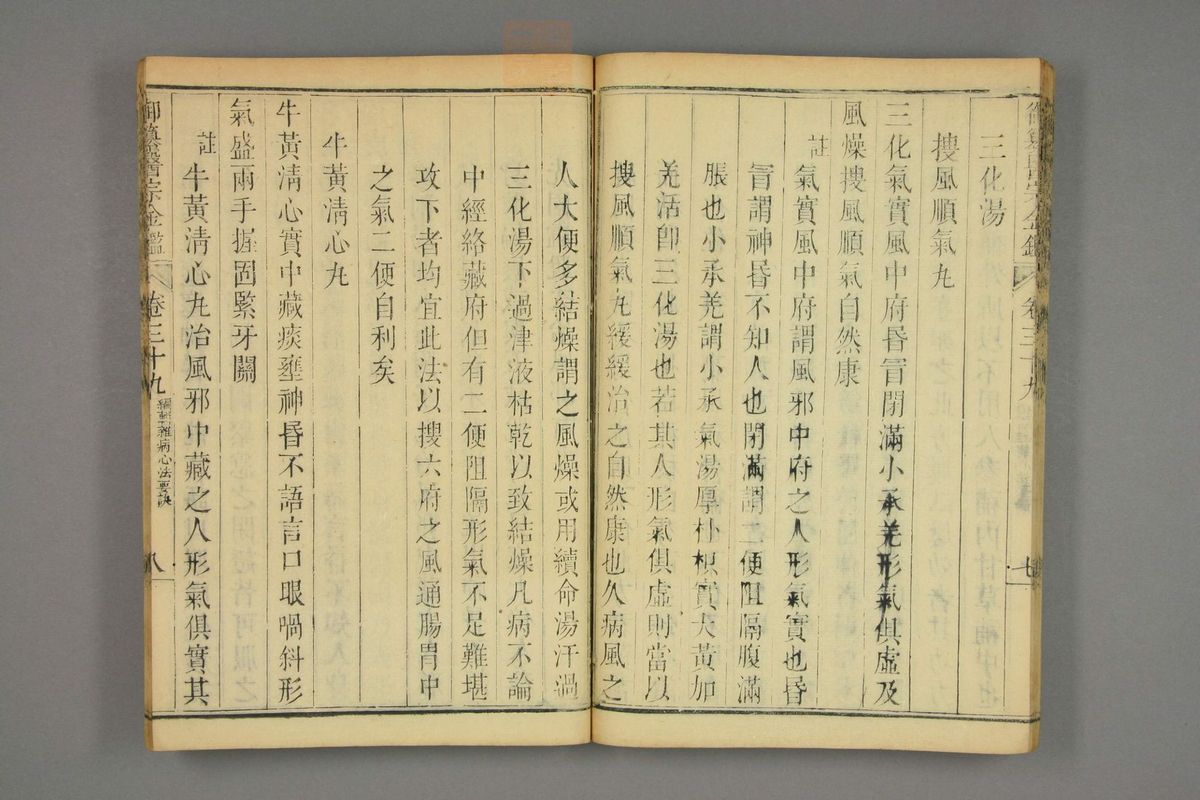 三化湯
搜風順氣丸
三化氣實風中府昏冒閉滿小承羌形氣俱虛及
風燥搜風順氣自然康
註氣實風中府謂風邪中府之人形氣實也昏
冒謂神昏不知人也閉滿謂二便阻隔腹滿
脹也小承羌謂小承氣湯厚朴枳實大黃加
羌活卽三化湯也若其人形氣俱虛則當以
搜風順氣丸緩緩治之自然康也久病風之
卷三十九
七
人大便多結燥謂之風燥或用續命湯汗過
三化湯下過津液枯乾以致結燥凡病不論
中經絡藏府但有二便阻隔形氣不足難堪
攻下者均宜此法以搜六府之風通腸胃中
之氣二便自利矣
牛黃淸心丸
牛黃淸心實中藏痰壅神昏不語言口眼喎斜形
氣盛兩手握固緊牙關
註牛黃淸心丸治風邪中藏之人形氣俱實其
御纂醫宗金鑑
卷三十九
編輯雜病心法要訣
八